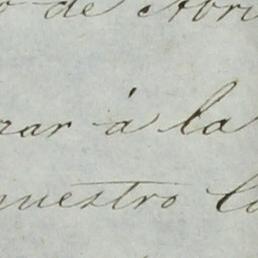 de Abri
rar á la
nuestro